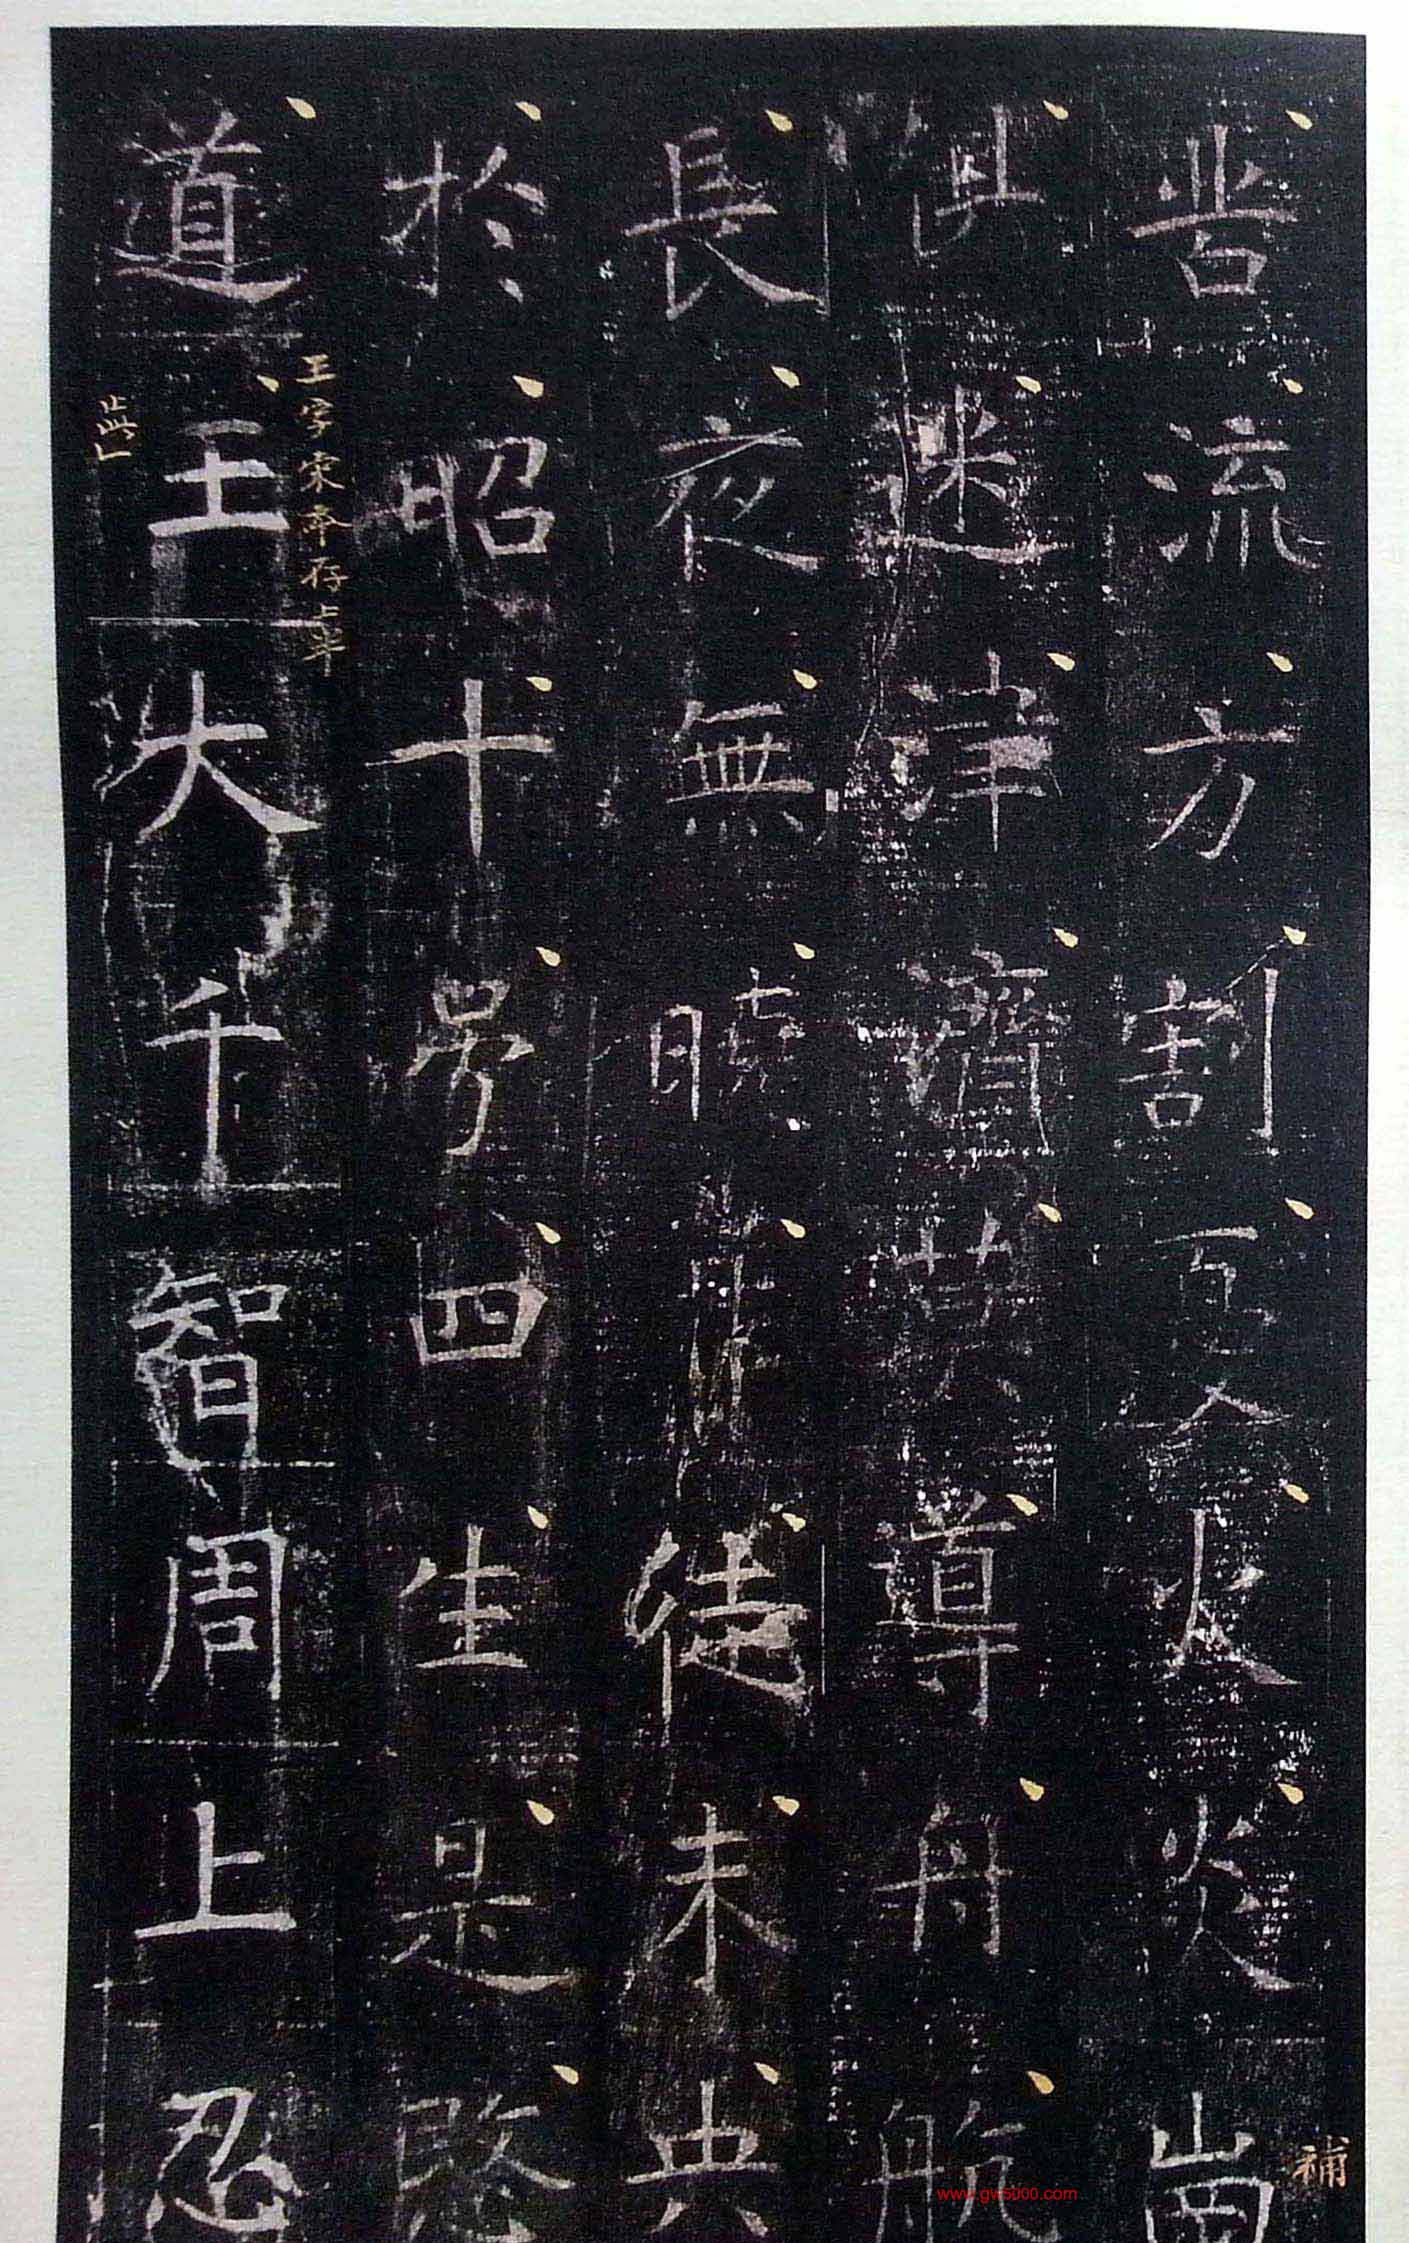 昔流方割火炎崗
補
迷津濟莫導舟航
長夜無曉徒未央
於昭十号四生是路
王字宋本存上半
道王大千智周上忍
www.gw5000.com